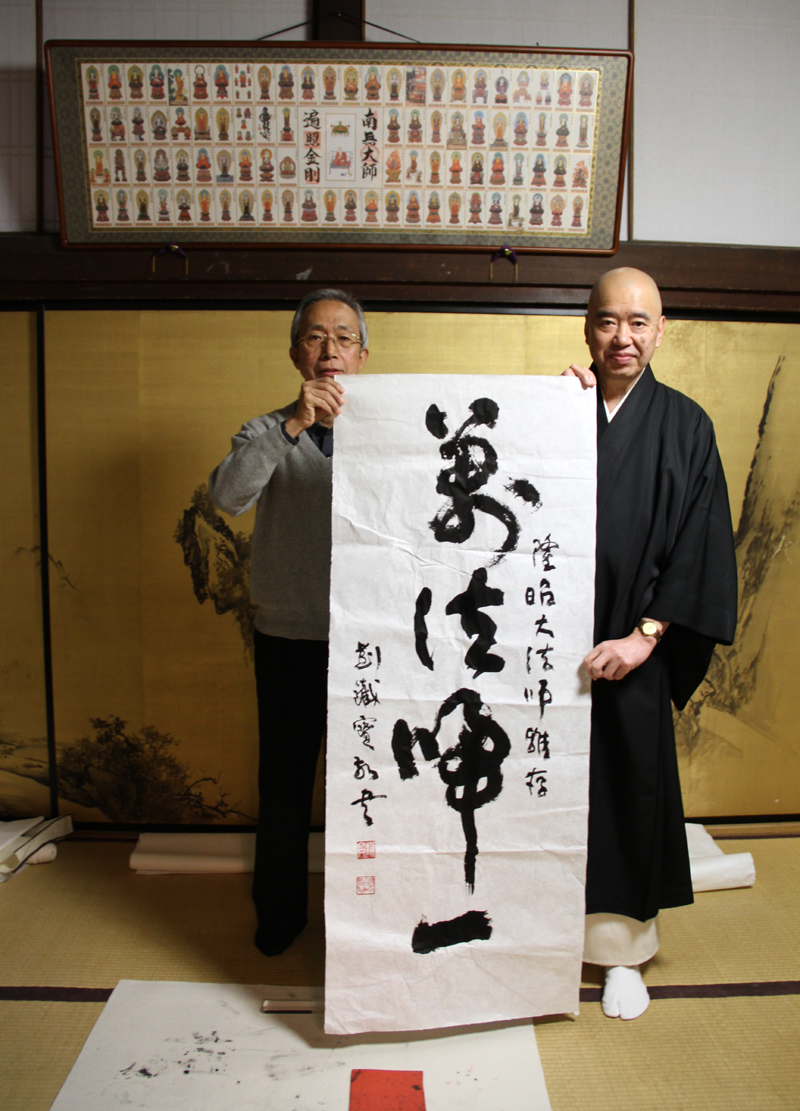 南無大師
遍照金剛
隆昭大法師雅存
萬法歸一
劉鐵寶敬書